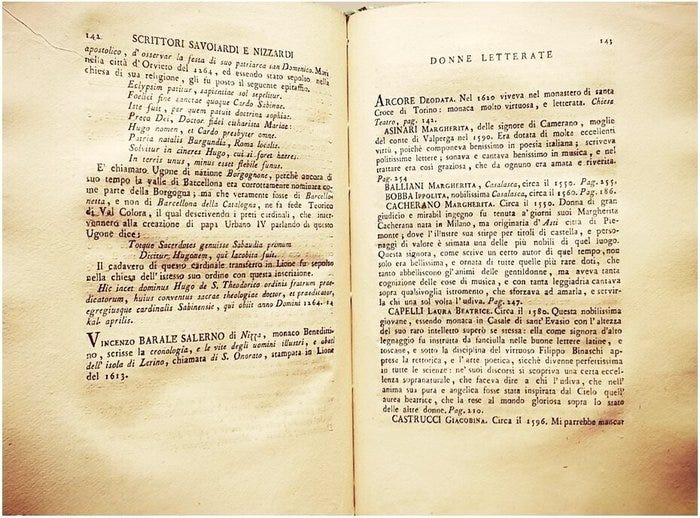 142
SCRITTORI SAVOIARDI E NIZZARDI
apostolico, d'osservar la festa di suo patriarca san Domenico. Morì
nella città d'Orvieto del 1264, ed essendo stato sepolto nella
chiesa di sua religione, gli fu posto il seguente epitaffio.
Eclypsim patitur, sapientiae sol sepelitur.
Foelici fine sanctae quoque Cardo Sabinae.
Iste fuit, per quem patuit doctrina sophiae,
Preco Dei, Doctor fidei citharista Mariae:
Hugo nomen, et Cardo presbyter omne.
Patria natalis Burgundis, Roma localis.
Solvitur in cineres Hugo, cui si foret haeres.
In terris unus, minus esset flebile funus.
E' chiamato Ugone di nazione Borgognone, perchè ancora di
suo tempo la valle di Barcellona era corrottamente nominata co-
me parte della Borgogna; ma che veramente fosse di Barcello-
netta, e non di Barcellona della Catalogna, ne fa fede Teorico
di Val Colora, il qual descrivendo i preti cardinali, che inter-
vennero alla creazione di papa Urbano IV parlando di questo
Ugone dice:
Totque Sacerdotes genuisse Sabaudia primum
Dicitur, Hugonem, qui Iacobita fuit.
Il cadavero di questo cardinale transferto in Lione fu sepolto
nella chiesa dell'istesso suo ordine con questa inscrizione.
Hic iacet dominus Hugo de S. Theodorico ordinis fratrum prae-
dicatorum, huius conventus sacrae theologiae doctor, et praedicator,
egregiusque cardinalis Sabinensis, qui obiit anno Domini 1264. 14
kal. aprilis.
VINCENZO BARALE SALERNO di Nizza, monaco Benedetti-
no, scrisse la cronologia, e le vite degli uomini illustri, e abati
dell'isola di Lerino, chiamata di S. Onorato, stampata in Lione
del 1613.
143
DONNE LETTERATE
ARCORE DEODATA. Nel 1620 viveva nel monastero di santa
Croce di Torino: monaca molto virtuosa, e letterata. Chiesa
Teatro, pag. 142.
ASINARI MARGHERITA, delle signore di Camerano, moglie
del conte di Valperga nel 1590. Era dotata di molte eccellenti
virtù, poichè componeva benissimo in poesia italiana; scriveva
politissime lettere; sonava e cantava benissimo in musica, e nel
trattare era così graziosa, che da ognuno era amata e riverita.
Pag. 254
BALLIANI MARGHERITA, Casalasca, circa il 1550. Pag. 155.
BOBBA IPPOLITA, nobilissima Casalasca, circa il 1560. Pag. 186.
CACHERANO MARGHERITA. Circa il 1550. Donna di gran
giudicio e mirabil ingegno fu tenuta a'giorni suoi Margherita
Cacherana nata in Milano, ma originaria d'Asti città di Pie-
monte; dove l'illustre sua stirpe per titoli di castella, e perso-
naggi di valore è stimata una delle più nobili di quel luogo.
Questa signora, come scrive un certo autor di quel tempo, non
solo era bellissima, e ornata di tutte quelle più rare doti, che
tanto abbelliscono gl'animi delle gentildonne, ma aveva tanta
cognizione delle cose di musica, e con tanta leggiadria cantava
sopra qualsivoglia istromento, che sforzava ad amarla, e servir-
la chi una sol volta l'udiva. Pag. 247.
CAPELLI LAURA BEATRICE. Circa il 1580. Questa nobilissima
giovane, essendo monaca in Casale di sant'Evasio con l'altezza
del suo raro intelletto superò se stessa: ella come signora d'alto
legnaggio fu instrutta da fanciulla nelle buone lettere latine, e
toscane, e sotto la disciplina del virtuoso Filippo Binaschi ap-
prese la rettorica, e l'arte poetica, sicchè divenne perfettissima
in tutte le scienze: ne' suoi discorsi si scopriva una certa eccel-
lenza sopranaturale, che faceva dire a chi l'udiva, che nell'
anima sua pura e angelica fosse stata inspirata dal Cielo quell'
aurea beatrice, che la rese al mondo gloriosa sopra lo stato
delle altre donne. Pag. 210.
CASTRUCCI GIACOBINA. Circa il 1596. Mi parrebbe mancar